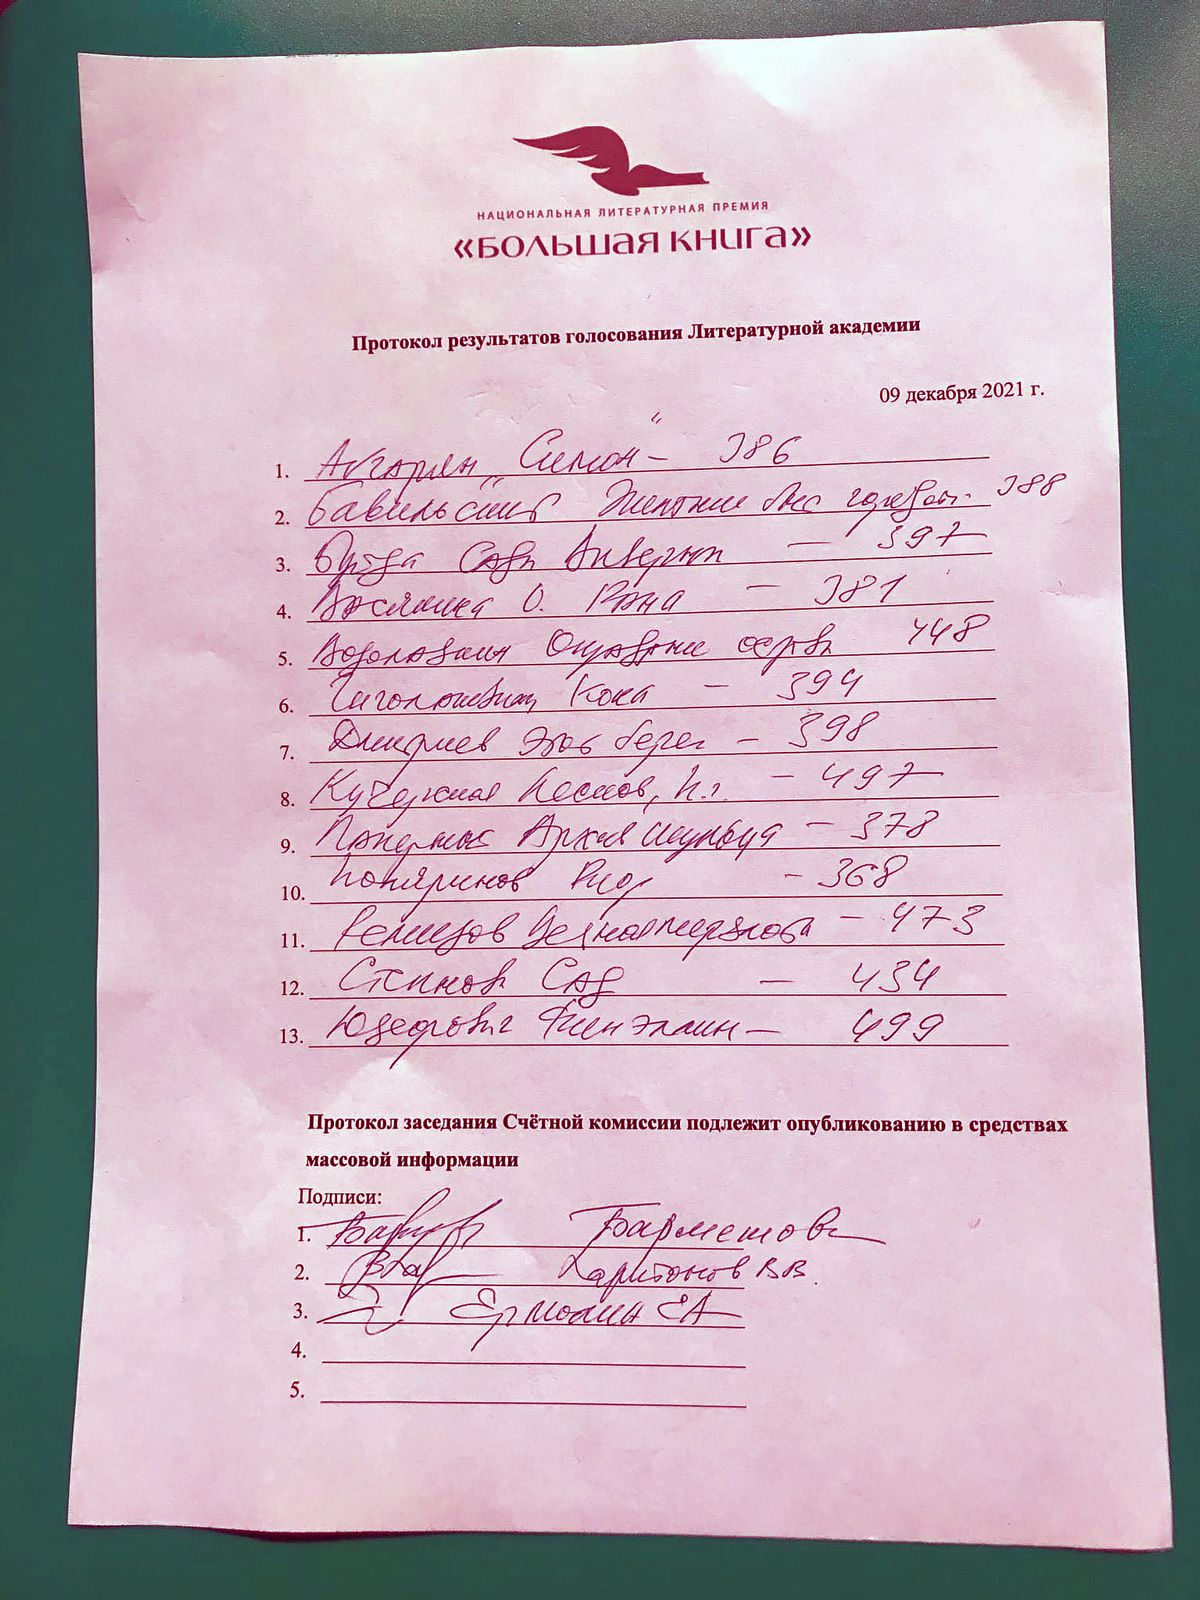 НАЦИОНАЛЬНАЯ ЛИТЕРАТУРНАЯ ПРЕМИЯ
«БОЛЬШАЯ КНИГА»
Протокол результатов голосования Литературной академии
09 декабря 2021 г.
1. Абгарян „Симон“ – 386
2. Бавильский Желание быть городом – 388
3. Буйда Сады Виверны – 397
4. Васякина О. Рана – 381
5. Водолазкин Оправдание острова 448
6. Гиголашвили Кока – 394
7. Дмитриев Этот берег – 398
8. Кучерская Лесков, – 497
9. Паперный Архив Шульца – 378
10. Поляринов Риф – 368
11. Ремизов Вечная мерзлота – 473
12. Степнова Сад – 434
13. Юзефович Филэллин – 499
Протокол заседания Счётной комиссии подлежит опубликованию в средствах
массовой информации
Подписи:
1. Барметова
2. Харитонов В В
3. Ермолин ЕА
4.
5.